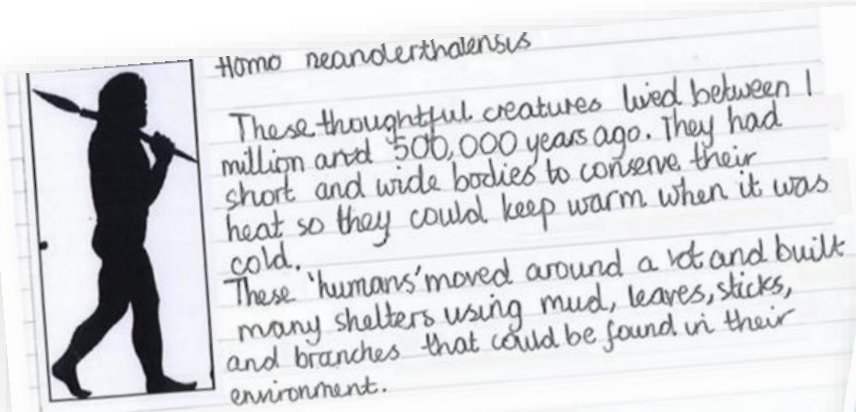 Homo neanderthalensis
These thoughtful creatures lived between 1
million and 500,000 years ago. They had
short and wide bodies to conserve their
heat so they could keep warm when it was
cold.
These 'humans' moved around a lot and built
many shelters using mud, leaves, sticks,
and branches that could be found in their
environment.